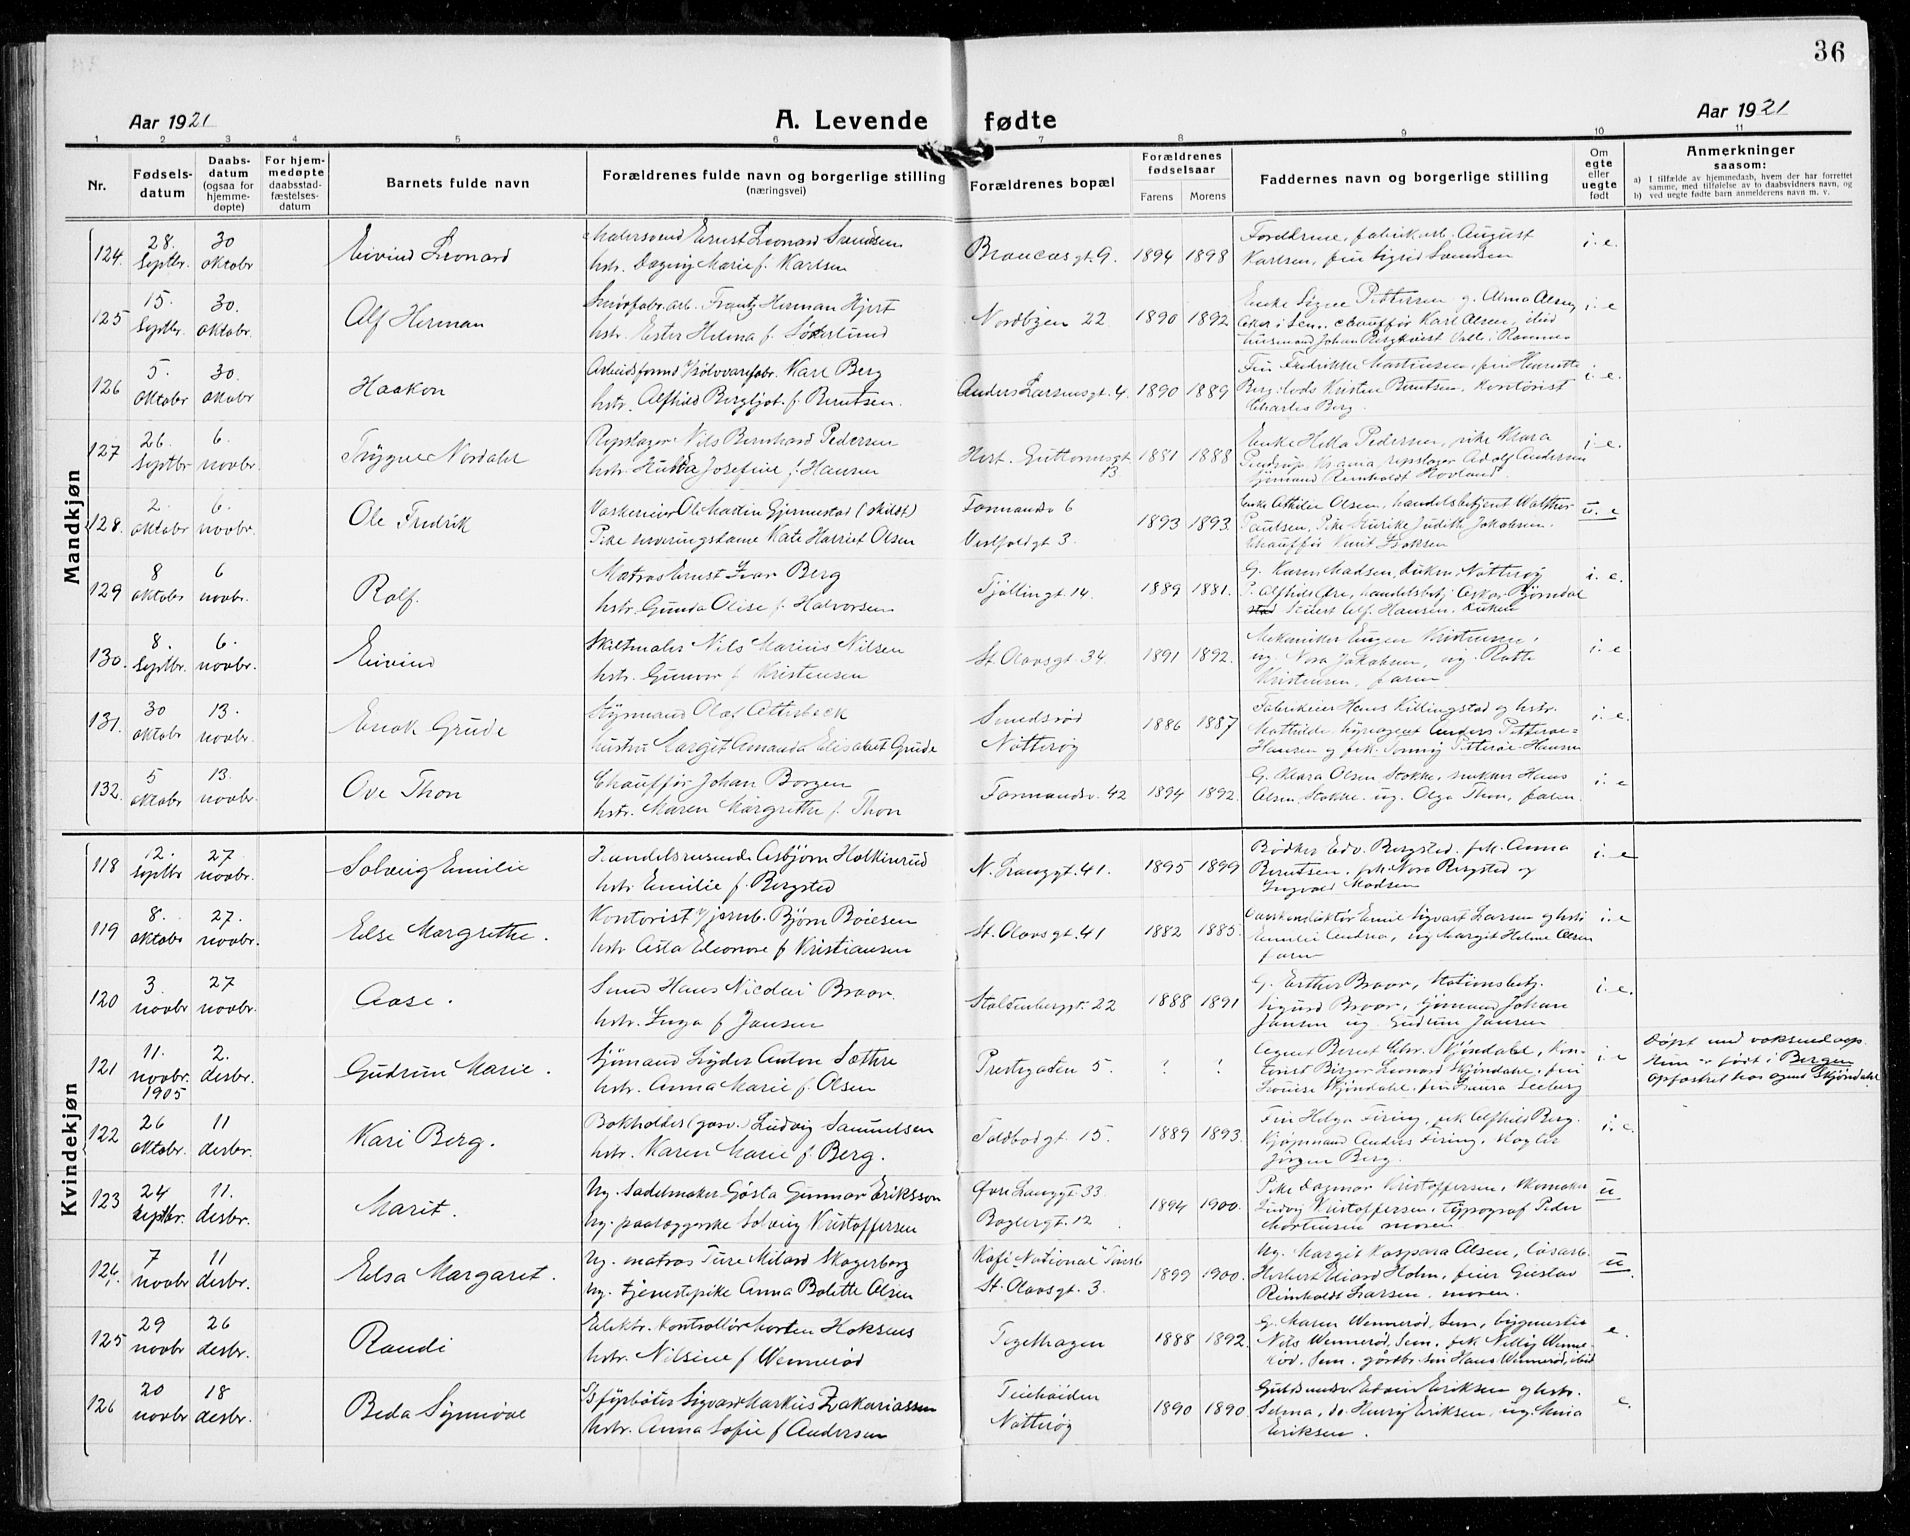 36
Aar 1921
A. Levende fødte
Aar 1921
1 2 3 4 5 6 7 8 9 10 11
Nr.
Fødsels-
datum
Daabs-
datum
(ogsaa for
hjemme-
døpte)
For hjem-
medøpte
daabsstad-
fæstelses-
datum
Barnets fulde navn
Forældrenes fulde navn og borgerlige stilling
(næringsvei)
Forældrenes bopæl
Forældrenes
fødselsaar
Farens Morens
Faddernes navn og borgerlige stilling
Om
egte
eller
uegte
født
Anmerkninger
saasom:
a) I tilfælde av hjemmedaab, hvem der har forrettet
samme, med tilføielse av to daabsvidners navn, og
b) ved uegte fødte barn anmelderens navn m. v.
Mandkjøn
124. 28. Septbr. 30 oktobr Eivind Leonard
Ernst Leonard Svendsen
hstr. Dagny Marie f. Karlsen
gt. 9. 1894 1898
Foreldrene, fabrikarb. August
Karlsen, frk Sigrid Svendsen
i. e.
125 15. Septbr. 30. oktobr. Alf Herman
Frantz Herman Hjert
hstr. Ester Helma f. Söderlund
Nordbyen 22. 1890 1892
Enke Signe Pettersen g. Alma Olsen
chauffør Karl Olsen, ibid
i. e
126 5. oktobr 30. oktobr Haakon
Karl Berg
hstr. Alfhild Bergljot f. Berntsen.
Anders Larsensgt. 4. 1890 1889
Berg. Kristen Berntsen, Kontorist
Charles Berg.
i. e.
127 26. Septbr 6. novbr. Trygve Nordahl
Repslager Nils Bernhard Pedersen
hstr. Hulda Josefine f. Hansen
Hert. Guttormsgt. 13. 1881 1888
Enke Hilda Pedersen, pike Klara
repslager Adolf Andersen
Sjømand Reinholdt Hovland
i. e.
128. 2. oktobr 6. novbr. Ole Fredrik
Ole Martin Gjermestad (skildt)
Pike serveringsdame Kate Harriet Olsen
Farmandsv 6
Vestfoldgt 3.
1893 1893.
Enke Othilie Olsen, handelsbetjent Walther
Paulsen, Pike Judith Jakobsen.
Chauffør Knut
u. e
129 8 oktobr 6 novbr. Rolf.
Matros Ernst Ivar Berg
hstr. Gunda Olise f. Halvorsen
Tjøllingt 14. 1889 1881.
G. Karen Madsen, Nøtterøy
handelsbetj. Oskar Bjørndal
Alf. Hansen.
i. e.
130. 8. Septbr. 6. novbr. Eivind
Skiltmaler Nils Marius Nilsen
hstr. Gunvor f. Kristensen
St. Olavsgt. 34. 1891 1892.
Mekaniker Eugen Kristensen,
ug. Nora Jakobsen, ug. Ruth
Kristensen, faren
i. e
131. 30 oktobr 13. novbr. Enok Grude
Olaf Otterbeck
hustru Margit Amanda Elisabet Grude
Smedsrød
Nøtterøy
1886 1887
Fabrikeier Hans Killingstad og hstr.
Mathilde,
i. e.
132. 5 oktobr 13. novbr. Ove Thon
Chauffør Johan Borgen
hstr. Maren Margrethe f. Thon
Farmandsv. 42 1894 1892.
G. Klara Olsen Stokke, snekker Hans
Olsen, Stokke. ug. Olga Thon, faren.
i. e
Kvindekjøn
118 12. Septbr 27 novbr. Solveig Emilie
Handelsreisende Asbjørn Holkinrud
hstr. Emilie f. Bergsted
N. Langgt. 41. 1895 1899
Bødker Edv. Bergsted. frk. Anna
Berntsen. frk Nora Bergsted og
Ingvald Madsen
i. e
119 8. oktobr 27. novbr. Else Margrethe.
Kontorist v/jernb. Bjørn Boiesen
hstr Asta Eleonore f Kristiansen
St. Olavsgt. 41 1882 1885.
Emil Sigvart Larsen og hstr
Emilie Andrea, ug Margit Helene Olsen
faren
i. e
120 3. novbr 27 novbr. Aase.
Smed Hans Nicolai Braar.
hstr. Inga f Jansen
Stoltenbergt. 22 1888 1891
G. Esther Braar, Stationsbetj.
Sigurd Braar, Sjømand Johan
Jansen ug. Gudrun Jansen
i. e.
121 11. novbr. 1905 2. desbr. Gudrun Marie.
Sjømand Lyder Anton Sæthre
hstr. Anna Marie f Olsen
Prestegaden 5. ? ?
Agent Bernt Chr. Skjöndahl, Kon-
torist Birger Leonard Skjöndahl, frk
Louise Skjöndahl, frk Laura Seeberg
i. e
Døpt med voksendaap.
Hun er født i Bergen
opfostret hos agent Skjöndahl
122 26 oktobr. 11 desbr. Kari Berg.
Bokholder Ludvig Samuelsen
hstr. Karen Marie f Berg.
Toldbodgt. 15. 1889 1893.
Frk Helga Firing, enk Alfhild Berg.
Kjøpmand Anders Firing,
Jørgen Berg.
i. e.
123 24 Septbr. 11. desbr. Marit.
Ug. Sadelmaker Gösta Gunnar Eriksson
Ug. paalæggerske Solveig Kristoffersen
Øvre Langgt. 33.
Baglergt. 12
1894 1900.
Pike Dagmar Kristoffersen, Skomaker
Ludvig Kristoffersen, typograf Peder
Mortensen moren
u
124. 7 novbr 11 desbr. Elsa Margaret.
Ug. matros Ture Milard Skogerborg
Ug. tjenestepike Anna Bolette Olsen
Kafé "National" Tønsb
St. Olavsgt. 3.
1899 1900.
Ug. Margit Kaspara Olsen, løsarb.
Herbert Holm, Gustav
Reinholdt Larsen, moren.
u.
125 29 novbr 26 desbr. Randi
Elektr. Kontrollör Morten Hoksnes
hstr. Nilsine f Wennerød
Tegelhagen 1888 1892.
G. Maren Wennerød, Sem,
Nils Wennerød, Sem, frk Nelly Wenne-
rød. Sem. gårdbr. Hans Wennerød, ibid
e.
126 20 novbr 18 desbr. Beda Synnøve
Sigvard Markus Zakariassen
hstr. Anna Sofie f Andersen
Teiehøiden
Nøtterøy
1890 1890.
Guldsmed Edvin Eriksen og hstr.
Selma, do. Henry Eriksen, ug. Mina
Eriksen.
e.